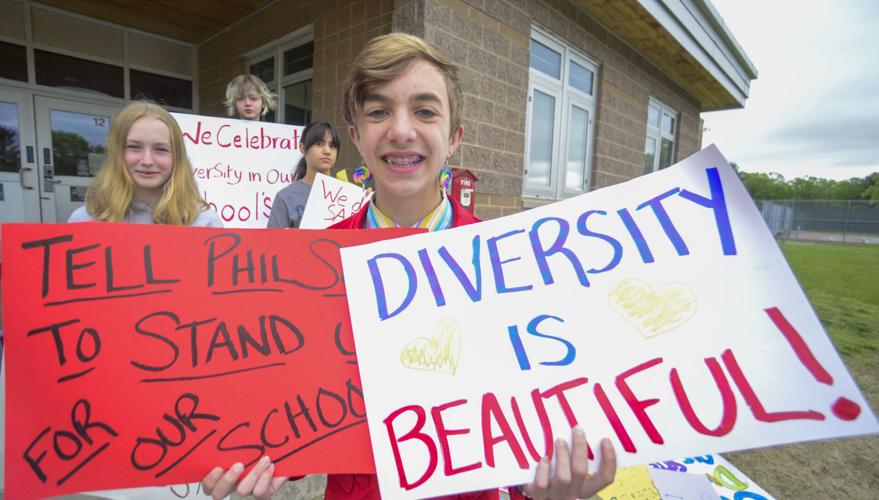 12
We
Diversity in Our
School's
We
FIRE
TELL PHIL
TO STAND
FOR OUR SCHOOL
DIVERSITY
IS
BEAUTIFUL!